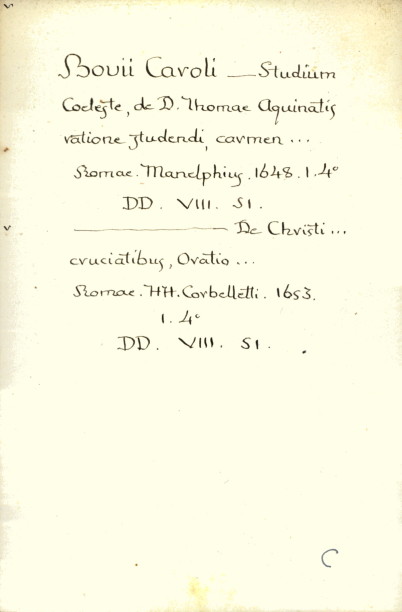 Bovii Caroli — Studium
Coeleste, de D. Thomae Aquinatis
ratione studendi, carmen ...
Romae. Manelphius. 1648. 1. 4°
DD. VIII. 51.
— De Christi ...
cruciatibus, Oratio ...
Romae. HH. Corbelletti. 1653.
1. 4°
DD. VIII. 51.
C